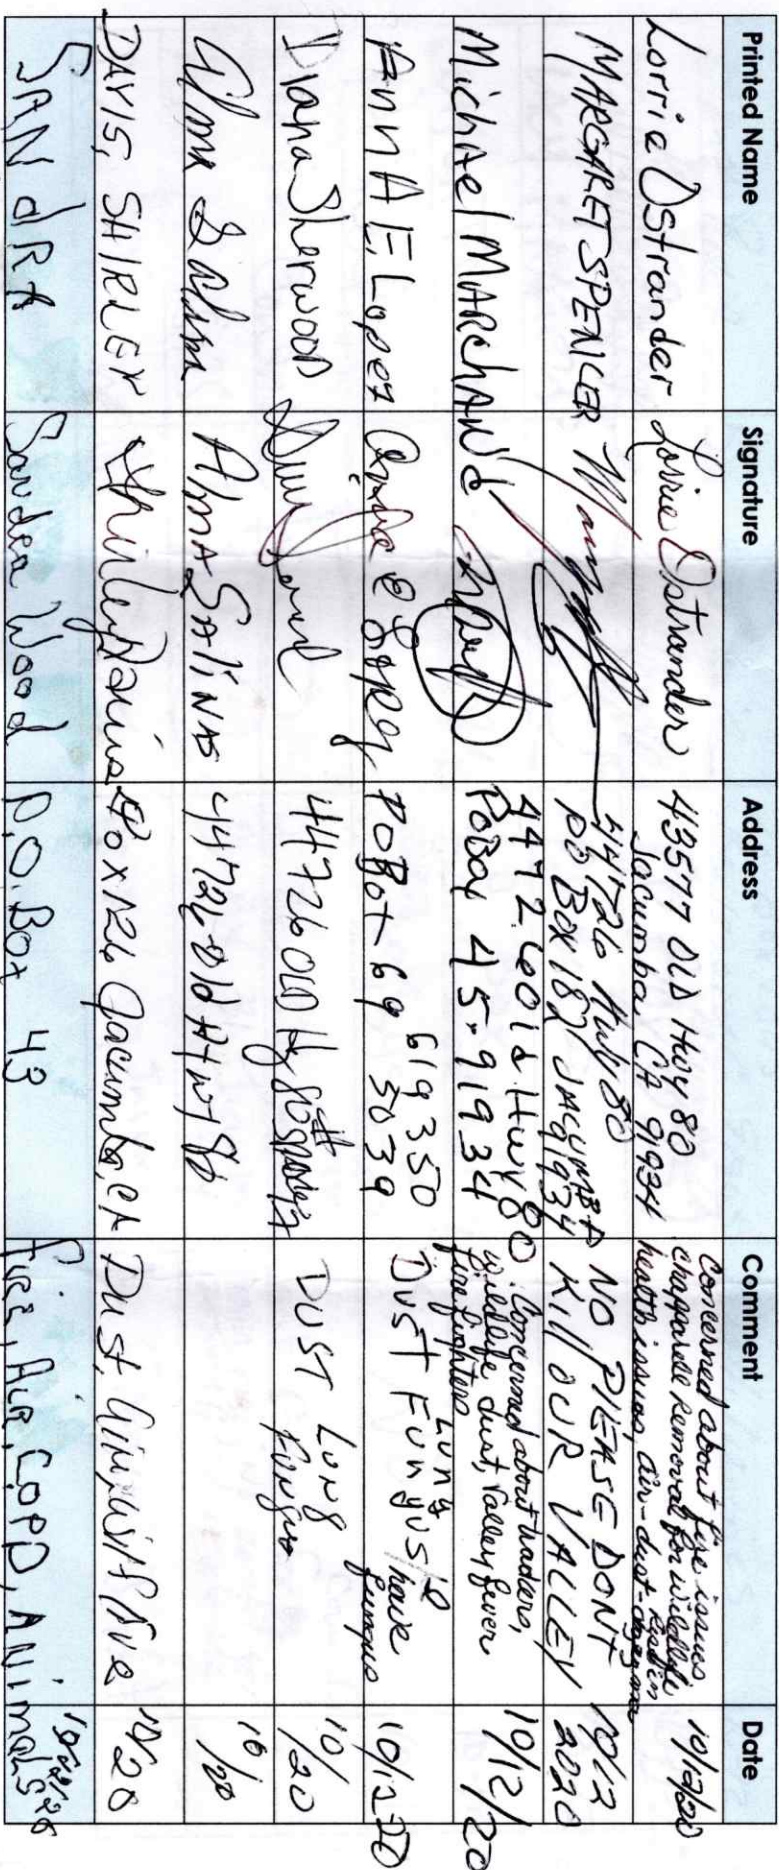 Printed Name Signature Address Comment Date
Lorrie Ostrander Lorrie Ostrander 43577 OLD Hwy 80
Jacumba, CA 91934 Concerned about fire issues
chaparell removal for wildlife
health issues, air-dust- 10/12/20
MARGARET SPENCER 44726 Hwy 80
PO BOX 182 JACUMBA
91934 NO PLEASE DONT
KILL OUR VALLEY 10/12
2020
Michael MARChANd 44726 Old HWY 80
PoBox 45-91934 Concerned about waders,
wildlife dust, valley fever
firefighters 10/12/20
AnnA E Lopez PO Box 69 619 350
3039 Lung
DUST FUNgUS I
have
fungus 10/12 20
Diana Sherwood 44726 OLD Hy 80 # DUST LUNG
Fungus 10/20
Alma Salinas AlmA SAliNAS 44726 Old HTWY 80 10/20
DAVIS, SHIRLEY Shirley Davis Box 126 Jacumba, CA Dust,
SANdRA Sandra Wood P.O. Box 43 Fire, Air, COPD, ANimals